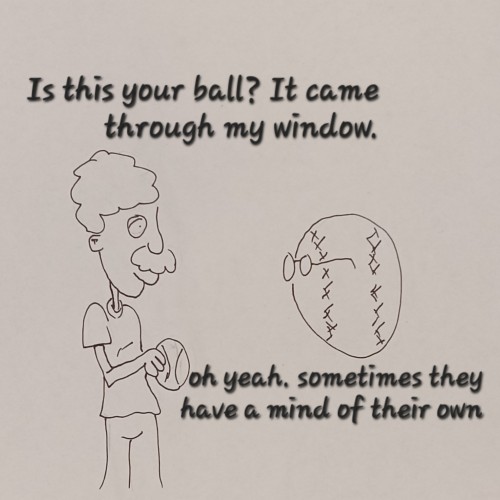 Is this your ball? It came
through my window.
oh yeah. sometimes they
have a mind of their own